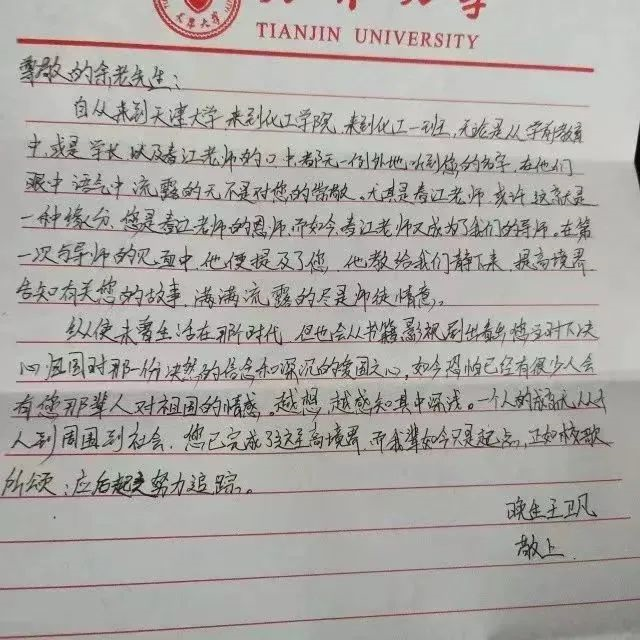 天津大学
天津大学
TIANJIN UNIVERSITY
尊敬的余老先生：
自从来到天津大学,来到化工学院,来到化工一班,无论是从学前教育
中,或是学长以及春江老师的口中,都无一例外地,听到您的名字,在他们
眼中语气中流露的无不是对您的崇敬。尤其是春江老师,或许这就是
一种缘分,您是春江老师的恩师,而如今,春江老师又成为了我们的导师。在第
一次与导师的见面中,他便提及了您,他教给我们静下来,提高境界
告知有关您的故事,满满流露的尽是师徒情意。
纵使未曾生活在那个时代,但也会从书籍影视 到出 您 时下决
心回国时那一份决然的信念和深沉的爱国之心,如今恐怕已经有很少人会
有您那辈人对祖国的情感,越想,越感知其中深浅。一个人的成长,从个
人到周围到社会,您已完成了这至高境界,而我辈如今只是起点,正如校歌
所颂：应后起 努力追踪。
晚生王卫凡
敬上